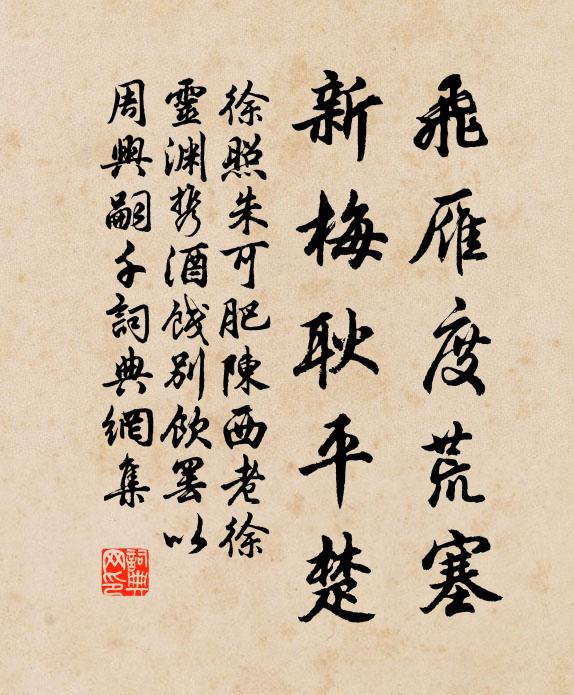 飛雁度荒塞
新梅耿平楚
徐照朱可肥陳西老徐
靈淵携酒餞別飲罢以
周興嗣千詞典網集
詞典网印